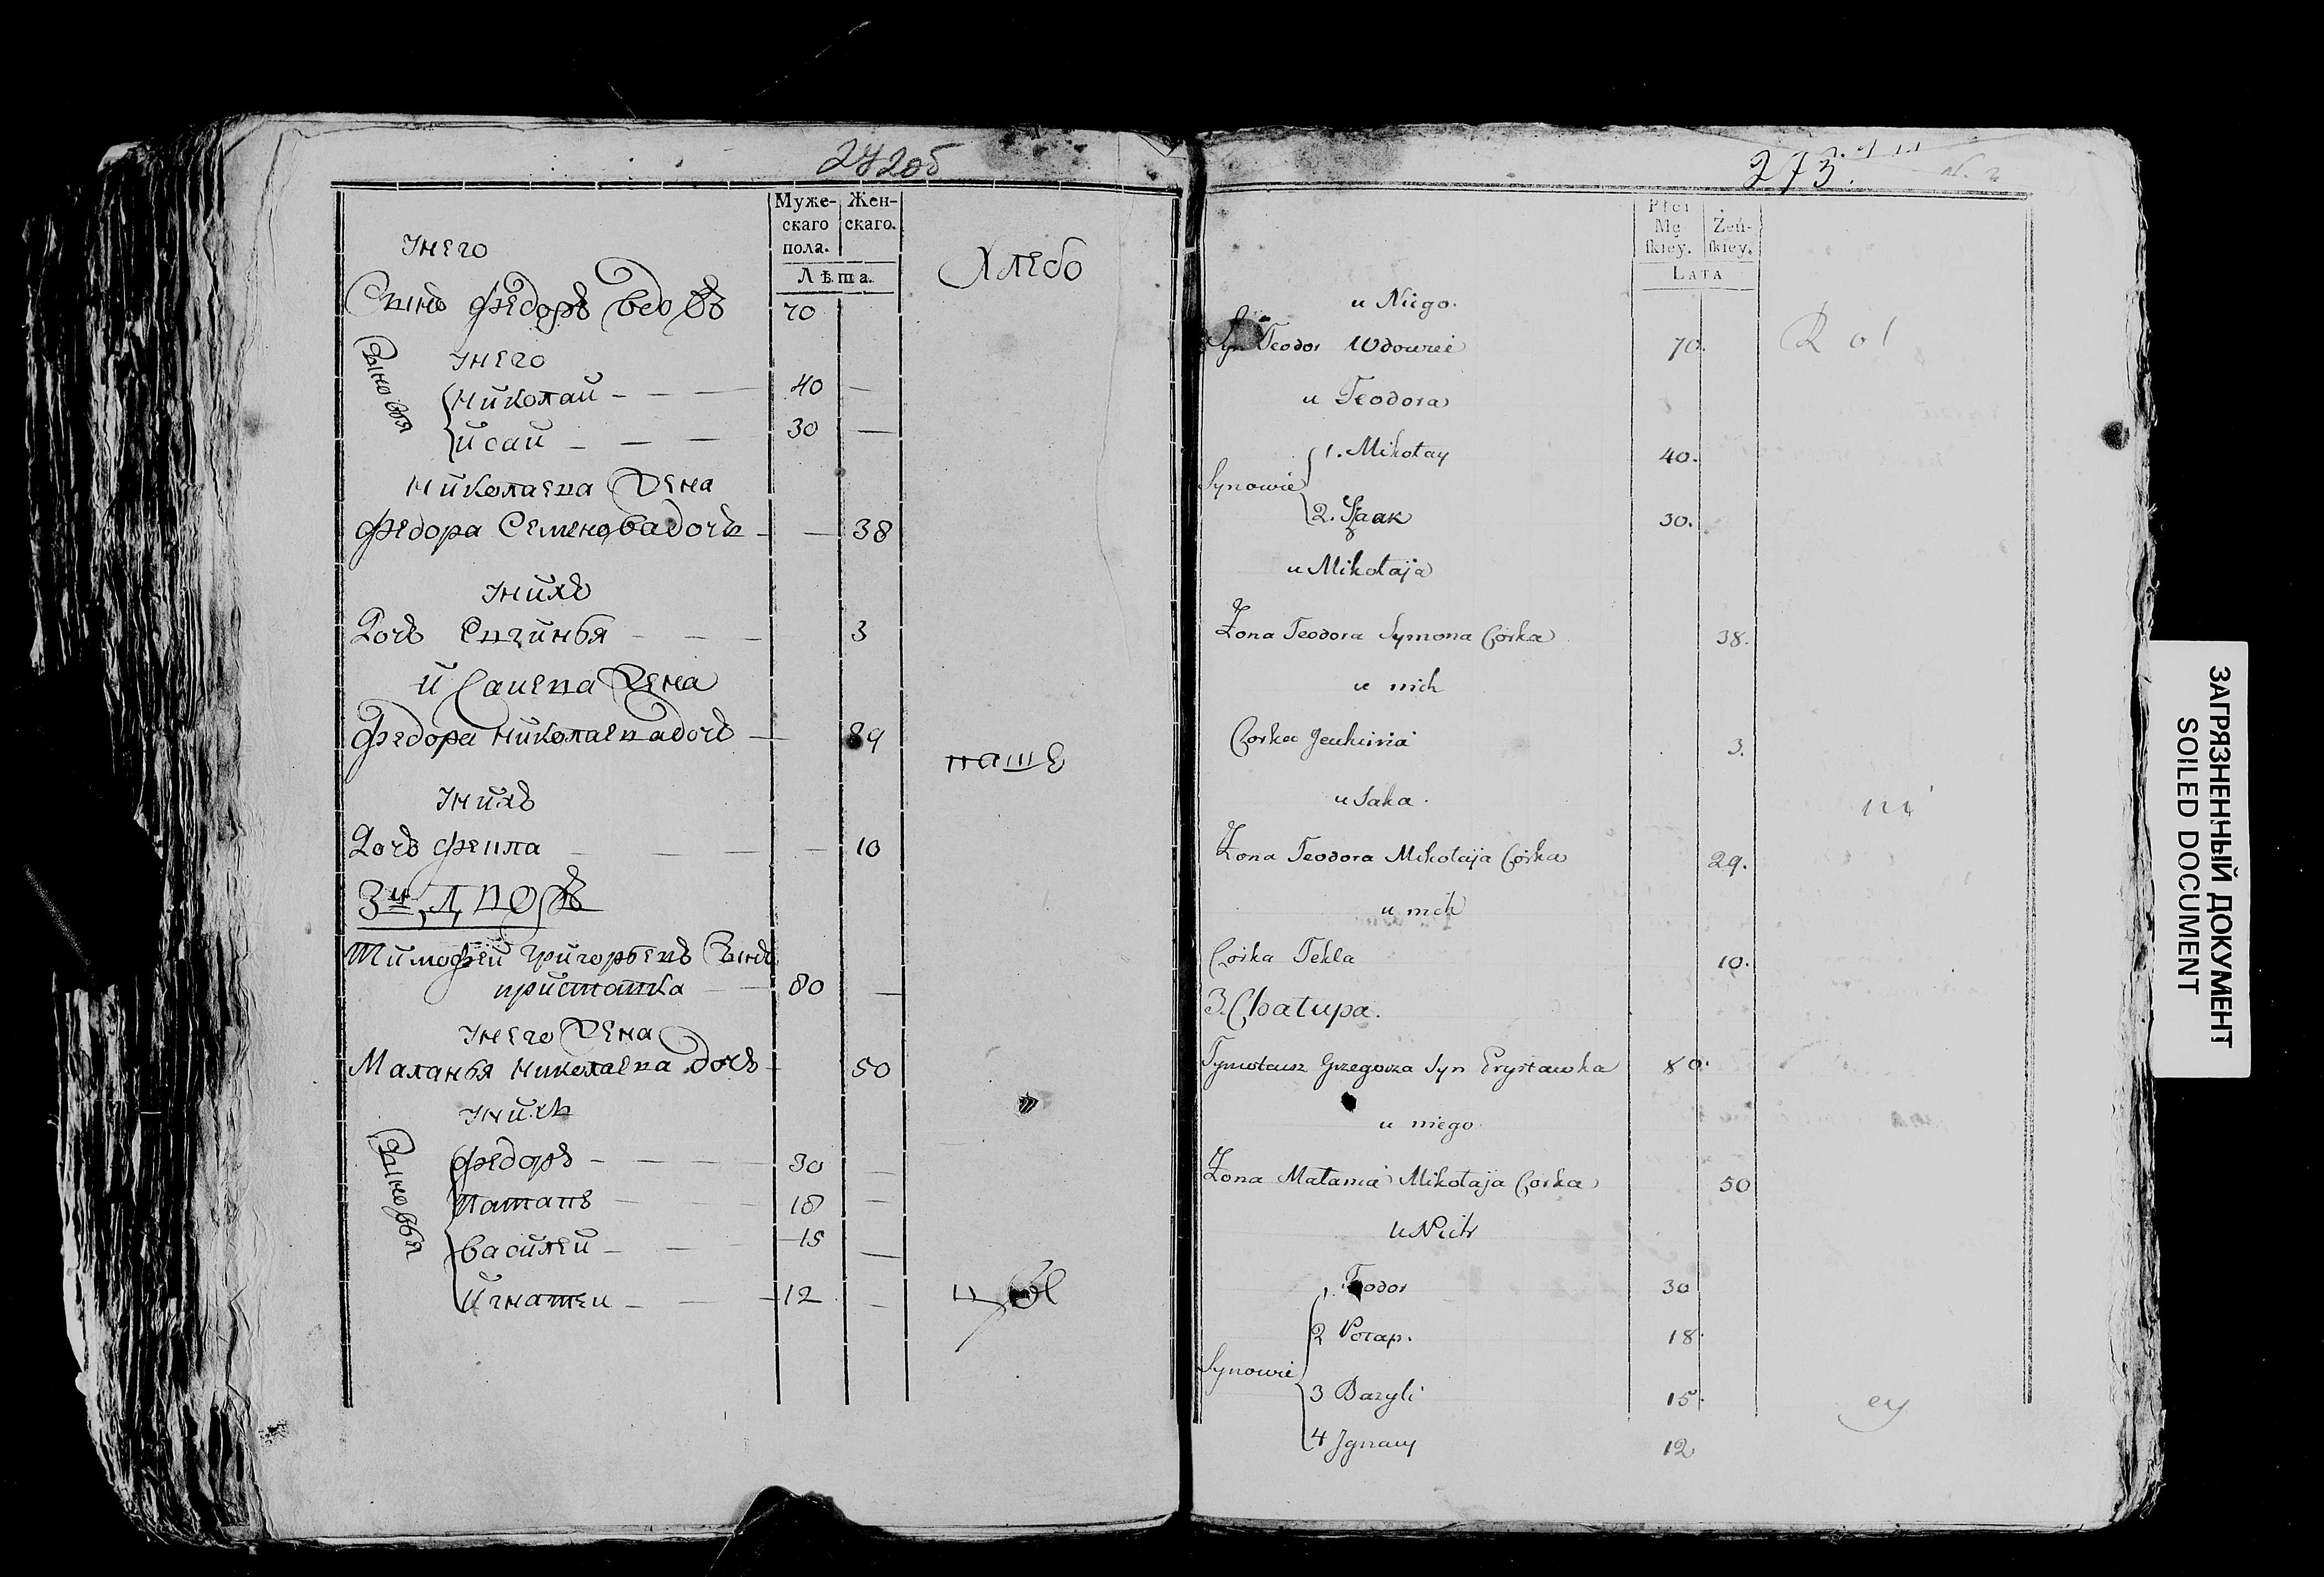 272об
Муже-
скаго
пола.
Жен-
скаго.
Лѣта.
Унего
Сынъ Федоръ вдовъ 70
Хлебо
Унего
Сыновья
Николай 40
Исай 30
Николаева жена
Федора Семенова дочь 38
Унихъ
Дочь Евгинья 3
Исаиева жена
Федора Николаева дочь 29
паше
Унихъ
Дочь Фекла 10
3й, Дворъ
Тимофей Григорьевъ Сынъ
приставка 80
Унего жена
Маланья Николаева дочь 50
Унихъ
Сыновья
Федоръ 30
Патапъ 18
Василей 15
Игнатей 12
цы
273.
Płci
Mę
ſkiey.
Żeń-
ſkiey.
LATA
u Niego.
Syn Teodor Wdowiec 70.
Rol
u Teodora
Synowie
1. Mikołay 40.
2. Izaak 30.
u Mikołaja
Żona Teodora Symona Córka 38.
u nich
Corka Jeuhinia 3.
u Saka.
ni
Żona Teodora Mikołaja Córka 29.
u nich
Corka Tekla 10.
3. Chałupa.
Tymoteusz Grzegorza Syn Prystawka 80.
u niego
Żona Małania Mikołaja Corka 50
u Nich
Synowie
1. Teodor 30
2 Potap. 18.
3 Bazyli 15.
4 Jgnacy 12
cy
ЗАГРЯЗНЕННЫЙ ДОКУМЕНТ
SOILED DOCUMENT